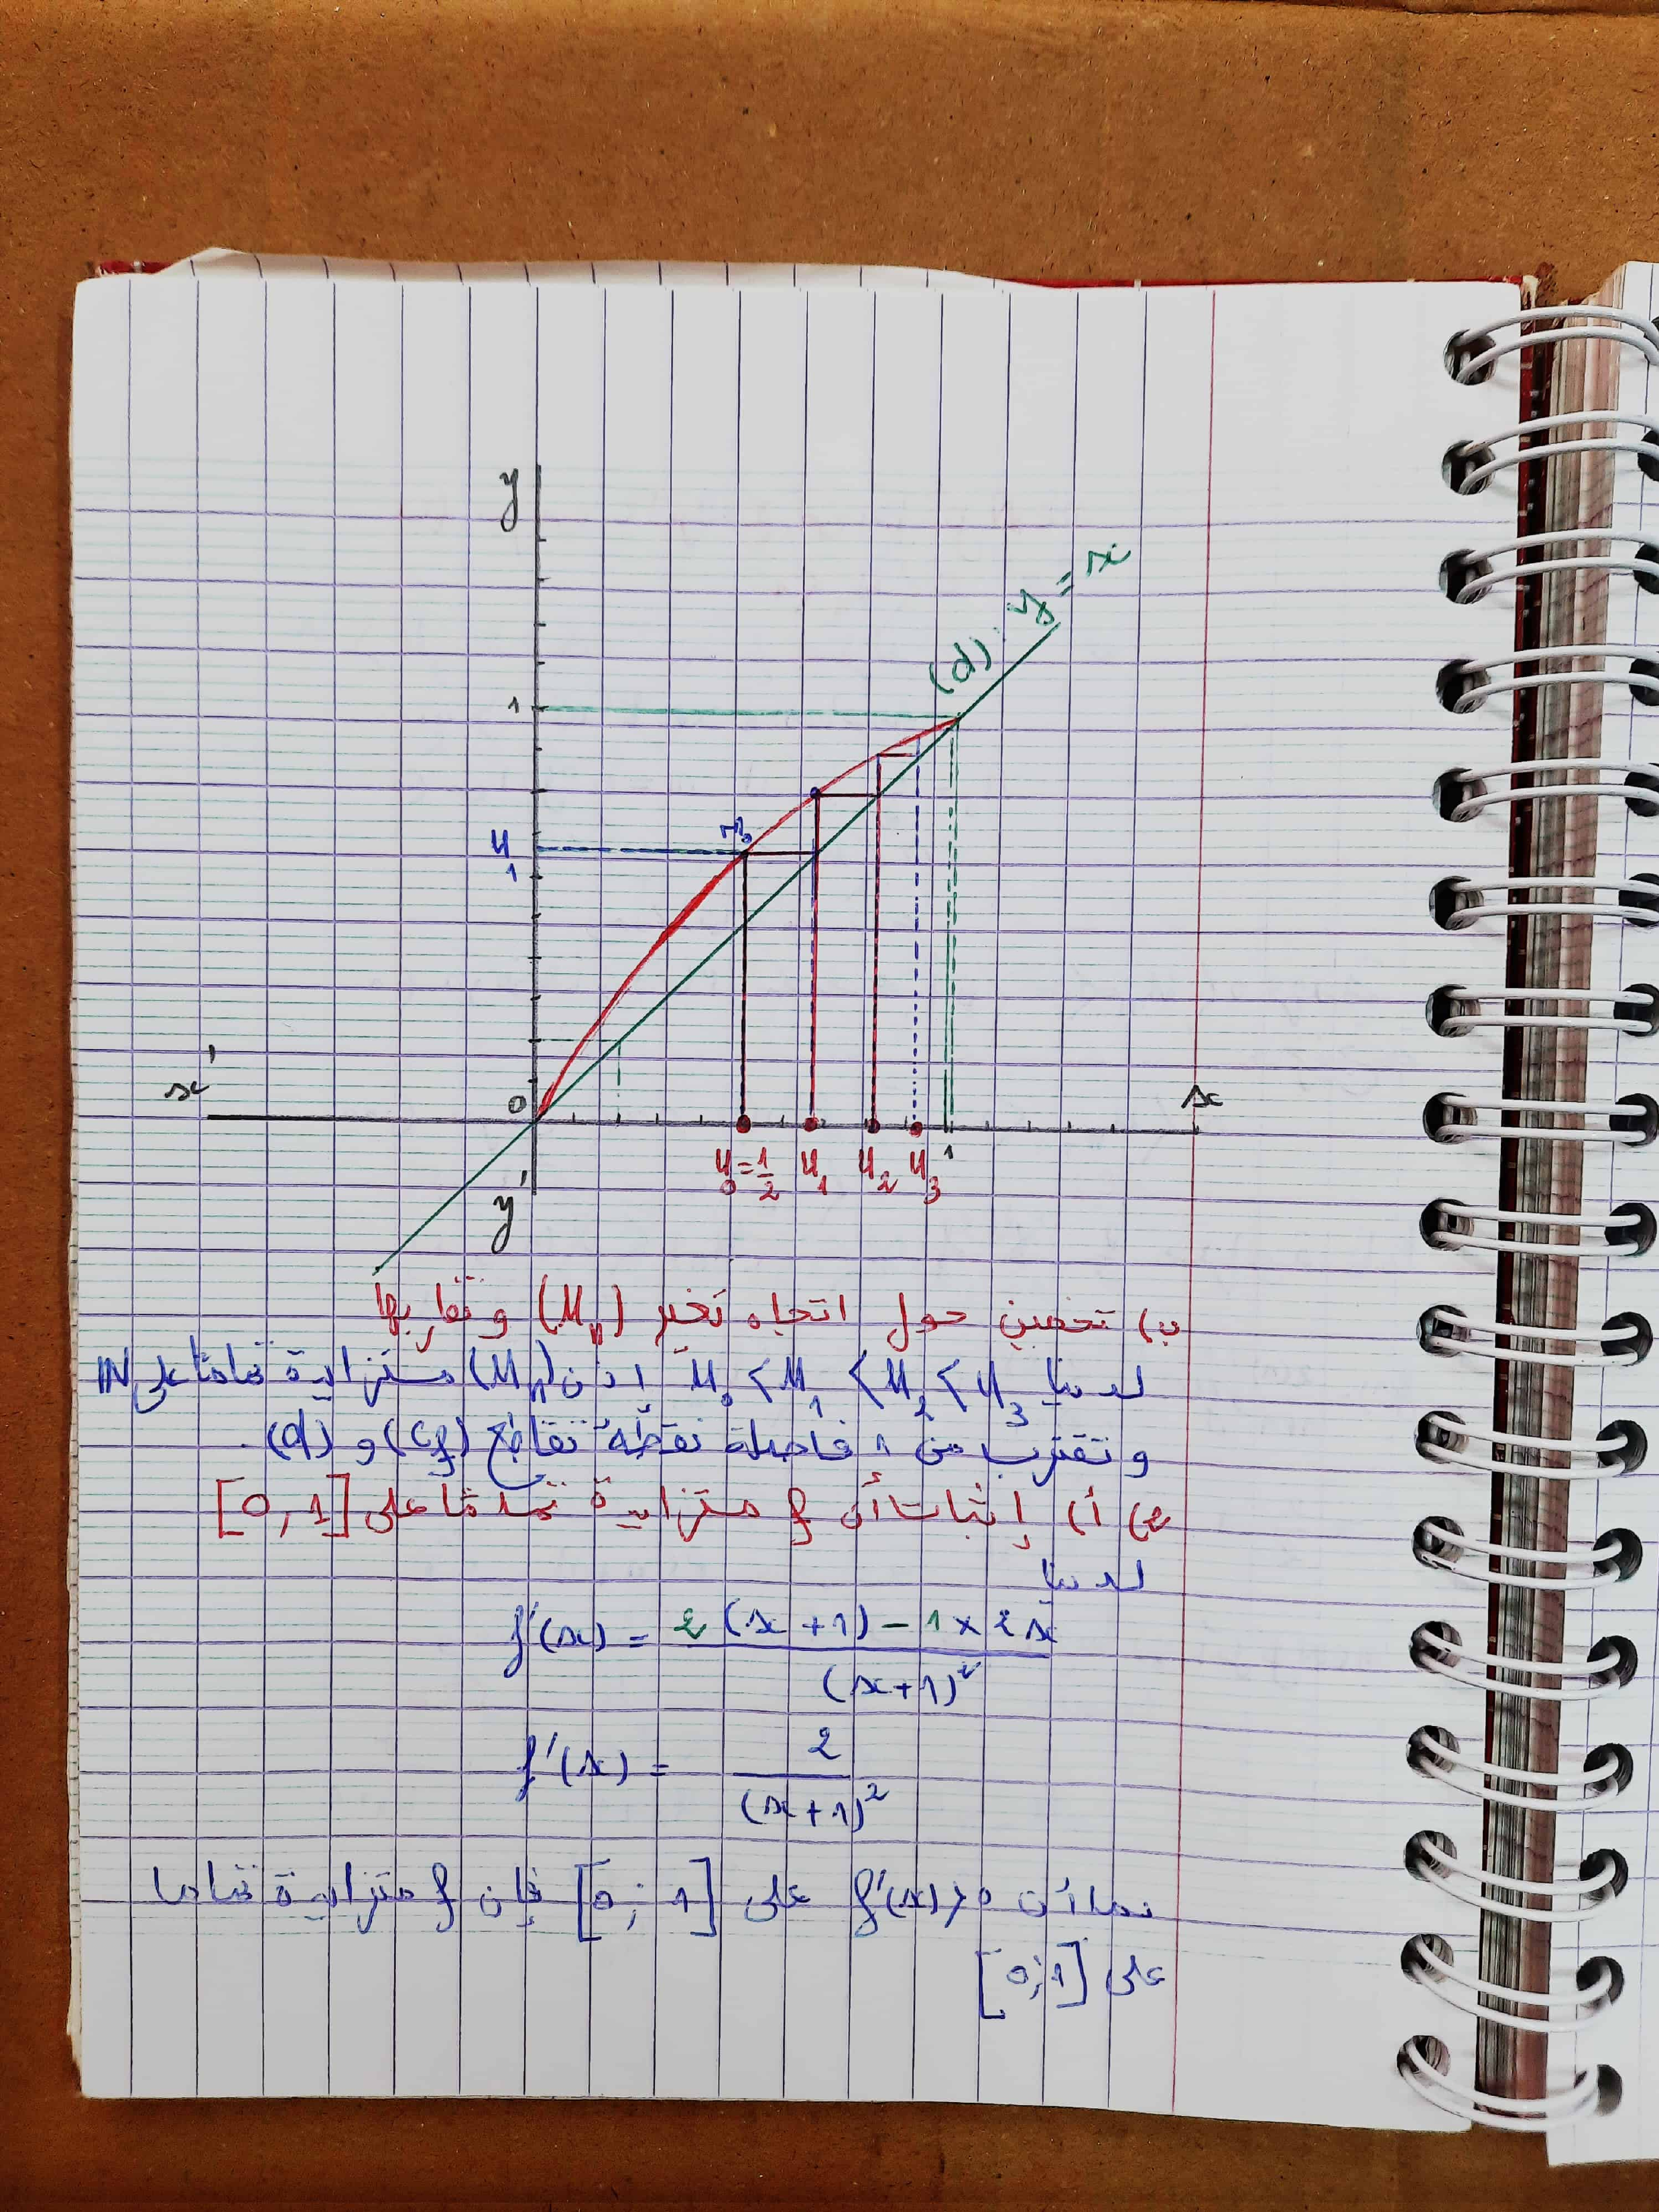 y
(d): y = x
1
u₁
x'
0
x
u₀ = 1/2 u₁ u₂ u₃ 1
y'
ب) تخمين حول اتجاه تغير (uₙ) و تقاربها
لدينا u₀ < u₁ < u₂ < u₃ إذن (uₙ) متزايدة تماما على ℕ
و تقترب من 1 فاصلة نقطة تقاطع (Cf) و (d).
2) أ) إثبات أن f متزايدة تماما على [0, 1]
لدينا
f'(x) = (2(x+1) - 1×2x) / (x+1)²
f'(x) = 2 / (x+1)²
بما أن f'(x) > 0 على [0; 1] فإن f متزايدة تماما
على [0;1]